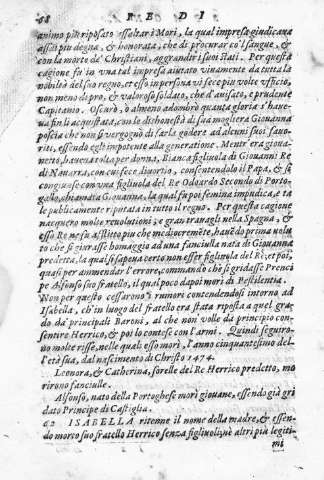 68 R E D I
animo più riposato essaltar i Mori, la qual impresa giudicaua
assai piu degna, & honorata, che di procurar co'l sangue, &
con la morte de' Christiani, aggrandir i suoi stati. Per questa
cagione fu in vna tal impresa aiutato viuamente da tutta la
nobiltà del suo regno, et esso in persona vi fece più volte vfficio,
non meno di pro, & valoroso soldato, che d'auisato, e prudente
Capitanio. Oscurò, ò almeno adombrò quanta gloria s'haue-
ua fin lì acquistata, con le dishonestà di sua mogliera Giouanna
poscia che non si vergognò di farla godere ad alcuni suoi fauo-
riti, essendo egli impotente alla generatione. Mentr'era gioua-
netto, haueua tolta per donna, Bianca figliuola di Giouanni Re
di Nauarra, con cui fece diuortio, consentendolo il Papa, & si
congiunse con vna figliuola del Re Odoardo Secondo di Porto-
gallo, chiamata Giouanna, la qual fu poi femina impudica, & ta
le publicamente riputata in tutto il regno. Per questa cagione
nacquero molte reuolutioni, & gran trauagli nella Spagna, &
esso Re ne fu afflitto piu che mediocremẽte, hauẽdo prima volu
to che si giurasse homaggio ad vna fanciulla nata di Giouanna
predetta, la qual si sapeua certo non esser figliuola del Re, et poi,
quasi per ammendar l'errore, commandò che si gridasse Prenci
pe Alfonso suo fratello, il qual poco dapoi morì di Pestilentia.
Non per questo cessarono i rumori contendendosi intorno ad
Isabella, ch'in luogo del fratello era stata riposta a quel gra-
do da' principali Baroni, al che non volle da principio con-
sentire Herrico, & poi lo contese con l'armi. Quindi seguiro-
no molte risse, nelle quali esso morì, l'anno cinquantesimo del-
l'età sua, dal nascimento di Christo 1474.
Leonora, & Catherina, sorelle del Re Herrico predetto, mo
rirono fanciulle.
Alfonso, nato della Portoghese morì giouane, essendo già gri
dato Principe di Castiglia.
62 ISABELLA ritenne il nome della madre, & essen-
do morto suo fratello Herrico senza figliuoli, nè altri più legiti-
mi